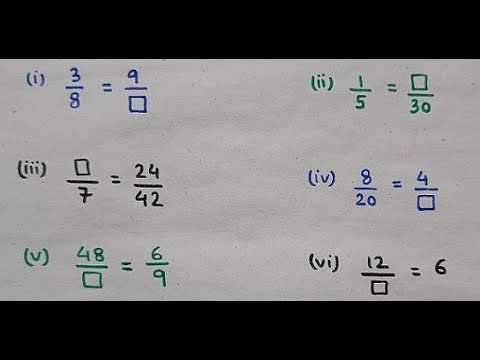 (i) 3/8 = 9/□ (ii) 1/5 = □/30
(iii) □/7 = 24/42 (iv) 8/20 = 4/□
(v) 48/□ = 6/9 (vi) 12/□ = 6